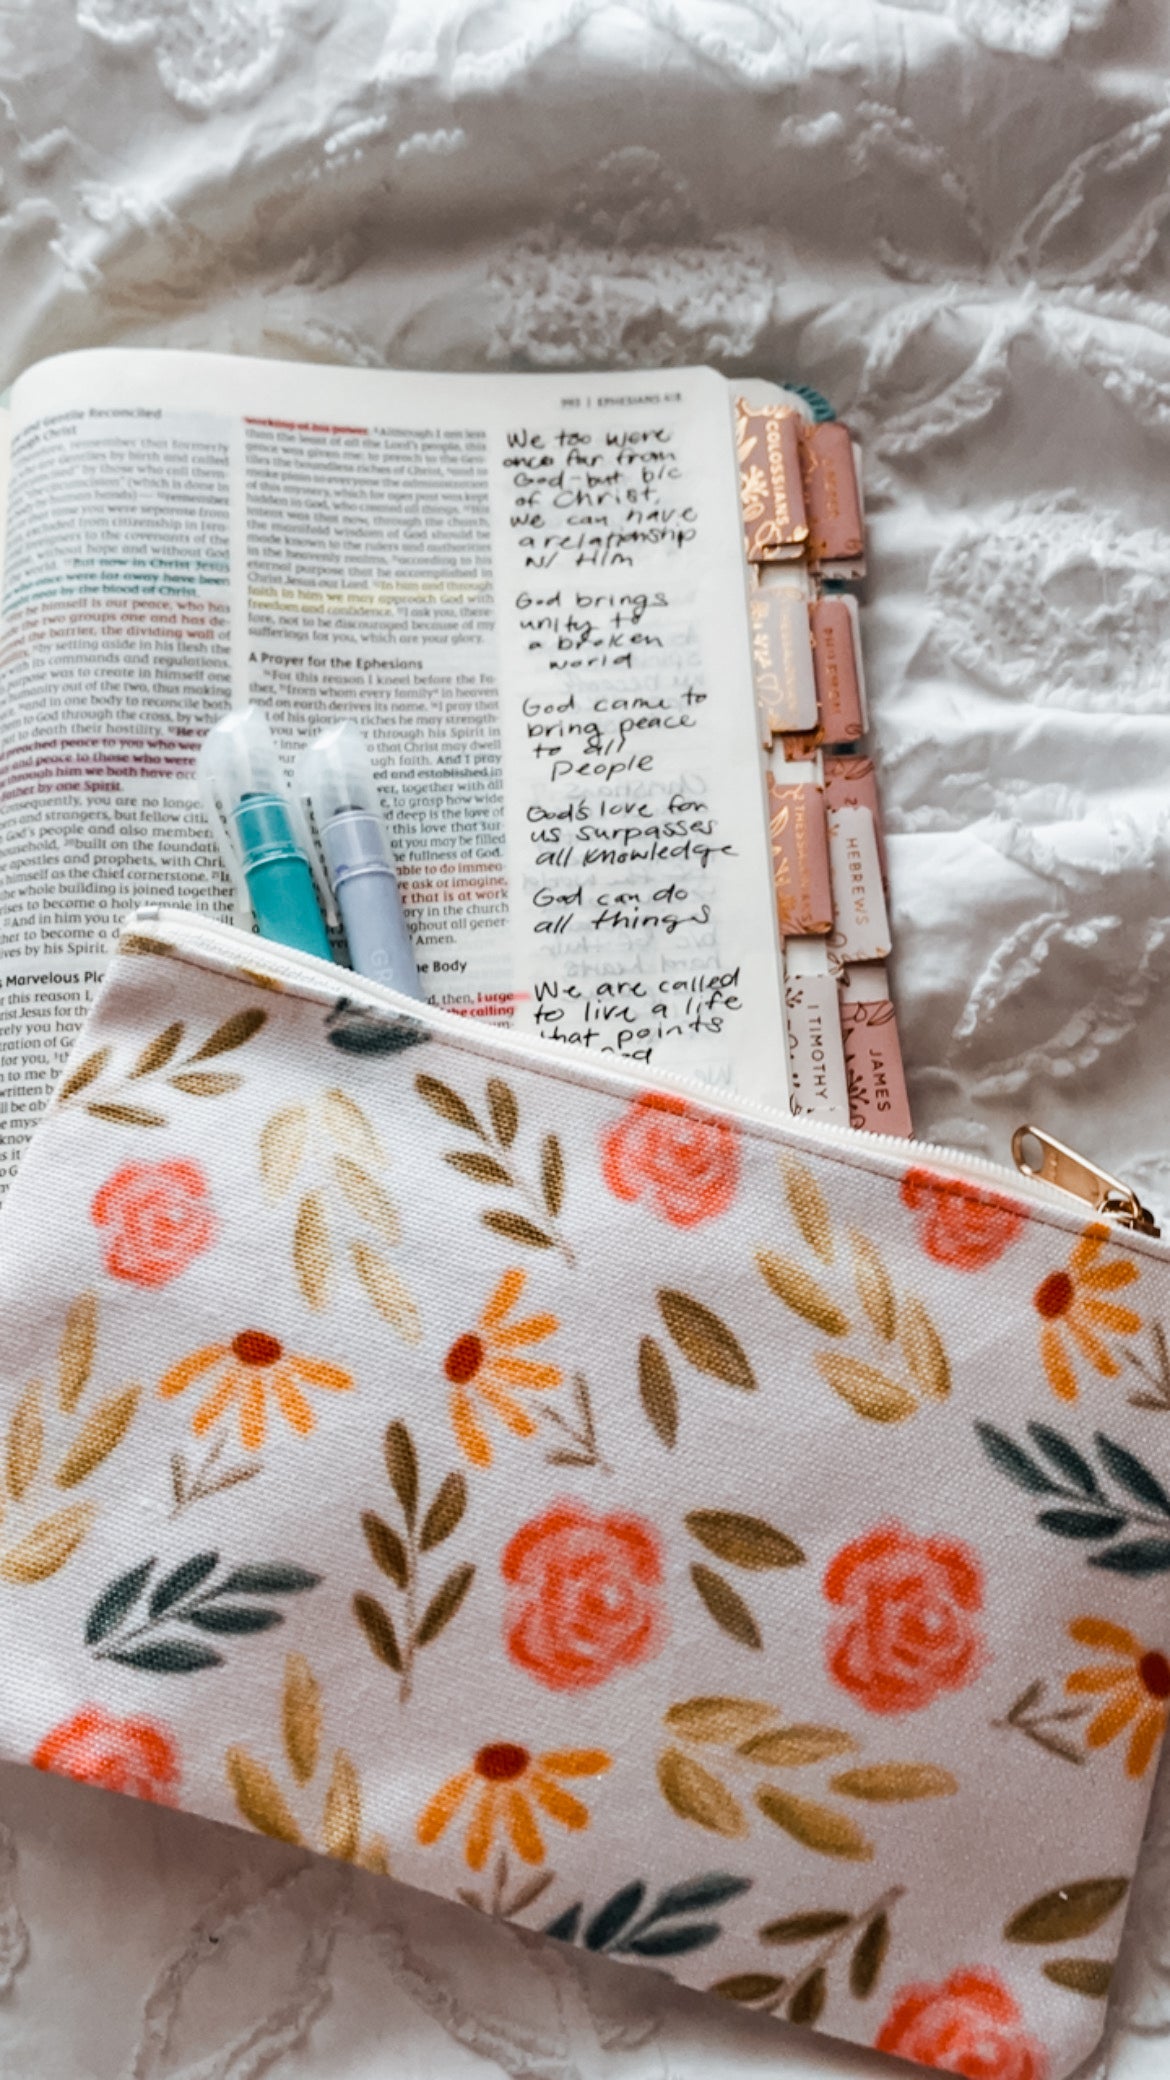 and Gentile Reconciled
through Christ
remember that formerly
who are Gentiles by birth and called
by those who call them
(which is done in
hands) — remember
time you were separate from
excluded from citizenship in Isra-
to the covenants of the
without hope and without God
But now in Christ Jesus
once were far away have been
near by the blood of Christ.
he himself is our peace, who has
the two groups one and has de-
the barrier, the dividing wall of
by setting aside in his flesh the
with its commands and regulations.
purpose was to create in himself one
humanity out of the two, thus making
and in one body to reconcile both
to God through the cross, by whic
to death their hostility. He c
preached peace to you who wer
and peace to those who were
through him we both have acc
Father by one Spirit.
Consequently, you are no longe
and strangers, but fellow citi
God's people and also member
built on the foundati
apostles and prophets, with Chri
himself as the chief cornerstone.
whole building is joined together
rises to become a holy temple in the
And in him you to
her to become a d
lives by his Spirit.
Marvelous Pl
this reason I,
Jesus for th
you hav
ration of G
for you,
to me b
written b
working of his power. Although I am less
than the least of all the Lord's people, this
grace was given me: to preach to the Gen-
tiles the boundless riches of Christ, and to
make plain to everyone the administration
of this mystery, which for ages past was kept
hidden in God, who created all things. His
intent was that now, through the church,
the manifold wisdom of God should be
made known to the rulers and authorities
in the heavenly realms, according to his
eternal purpose that he accomplished in
Christ Jesus our Lord. In him and through
faith in him we may approach God with
freedom and confidence. I ask you, there-
fore, not to be discouraged because of my
sufferings for you, which are your glory.
A Prayer for the Ephesians
For this reason I kneel before the Fa-
ther, from whom every family in heaven
and on earth derives its name. I pray that
of his glorious riches he may strength-
you with through his Spirit in
inne so that Christ may dwell
ugh faith. And I pray
ed and established in
ver, together with all
to grasp how wide
d deep is the love of
this love that sur-
at you may be filled
he fullness of God.
able to do immea-
we ask or imagine,
r that is at work
ory in the church
ghout all gener-
Amen.
he Body
then, I urge
the calling
EPHESIANS
We too were
once far from
God - but b/c
of Christ,
we can have
a relationship
w/ Him
God brings
unity to
a broken
world
God came to
bring peace
to all
People
God's love for
us surpasses
all knowledge
God can do
all things
We are called
to live a life
that points
COLOSSIANS
PHILEMON
2 THESSALONIANS
HEBREWS
1 TIMOTHY
JAMES